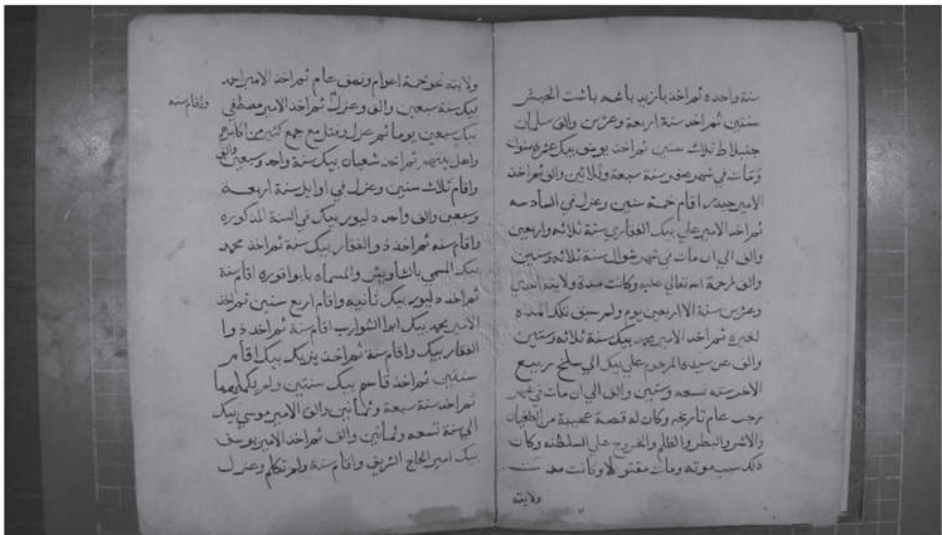 سنة واحده ثم اخذ بازيد باشه باشت الحبش
سنتين ثم اخذ سنة اربعة وعشرين والف سلمان
جنبلاط ثلاث سنين ثم اخذ يوسف بيك عشره سنوات
ومات في شهر صفر سنة سبعة وثلاثين والف ثم اخذ
الامير حيدر اقام خمسة سنين وعزل في السادسه
ثم اخذ الامير علي بيك الفقاري سنة ثلاثه واربعين
والف الي ان مات في شهر شوال سنة ثلاثه وستين
والف لرحمة الله تعالي عليه وكانت مدة ولايته احدي
وعشرين سنة الا اربعين يوم ولم سبق تلك المده
لغيره ثم اخذ الامير محمد بيك سنة ثلاثه وستين
والف عن سيده المرحوم علي بيك الي سلخ ربيع
الاخر سنه تسعه وستين والف الي ان مات في شهر
رجب عام تاريخه وكان له قصة عجيبة من الطغيان
والاشر والبطر والظلم والخروج علي السلطنه وكان
ذلك سبب موته ومات مقتولا وكانت مدت
ولايته
ولايته نحو خمسة اعوام ونصف عام ثم اخذ الامير احمد
بيك سنة سبعين والف وعزل ثم اخذ الامير مصطفي
واقام سنه
بيك سبعين يوما ثم عزل وقتل مع جمع كثير من اكابرهم
واهل بيتهم ثم اخذ شعبان بيك سنة واحد وسبعين والف
واقام ثلاث سنين وعزل في اوايل سنة اربعة
وسبعين والف واخذ دليور بيك في السنة المذكوره
واقام سنه ثم اخذ ذو الفقار بيك سنة ثم اخذ محمد
بيك المسمي بالشاويش والمسماه بابو اقوره اقام سنة
ثم اخذ دليور بيك ثانيه واقام اربع سنين ثم اخذ
الامير محمد بيك ابو الشوارب اقام سنة ثم اخذ ذوا
الفقار بيك واقام سنة ثم اخذ يزبك بيك اقام
سنتين ثم اخذ قاسم بيك سنتين ولم يكملهما
ثم اخذ سنة سبعة وثمانين والف الامير موسي بيك
الي سنة تسعه وثمانين والف ثم اخذ الامير يوسف
بيك امير الحاج الشريف واقام سنة ولم تكلم وعزل